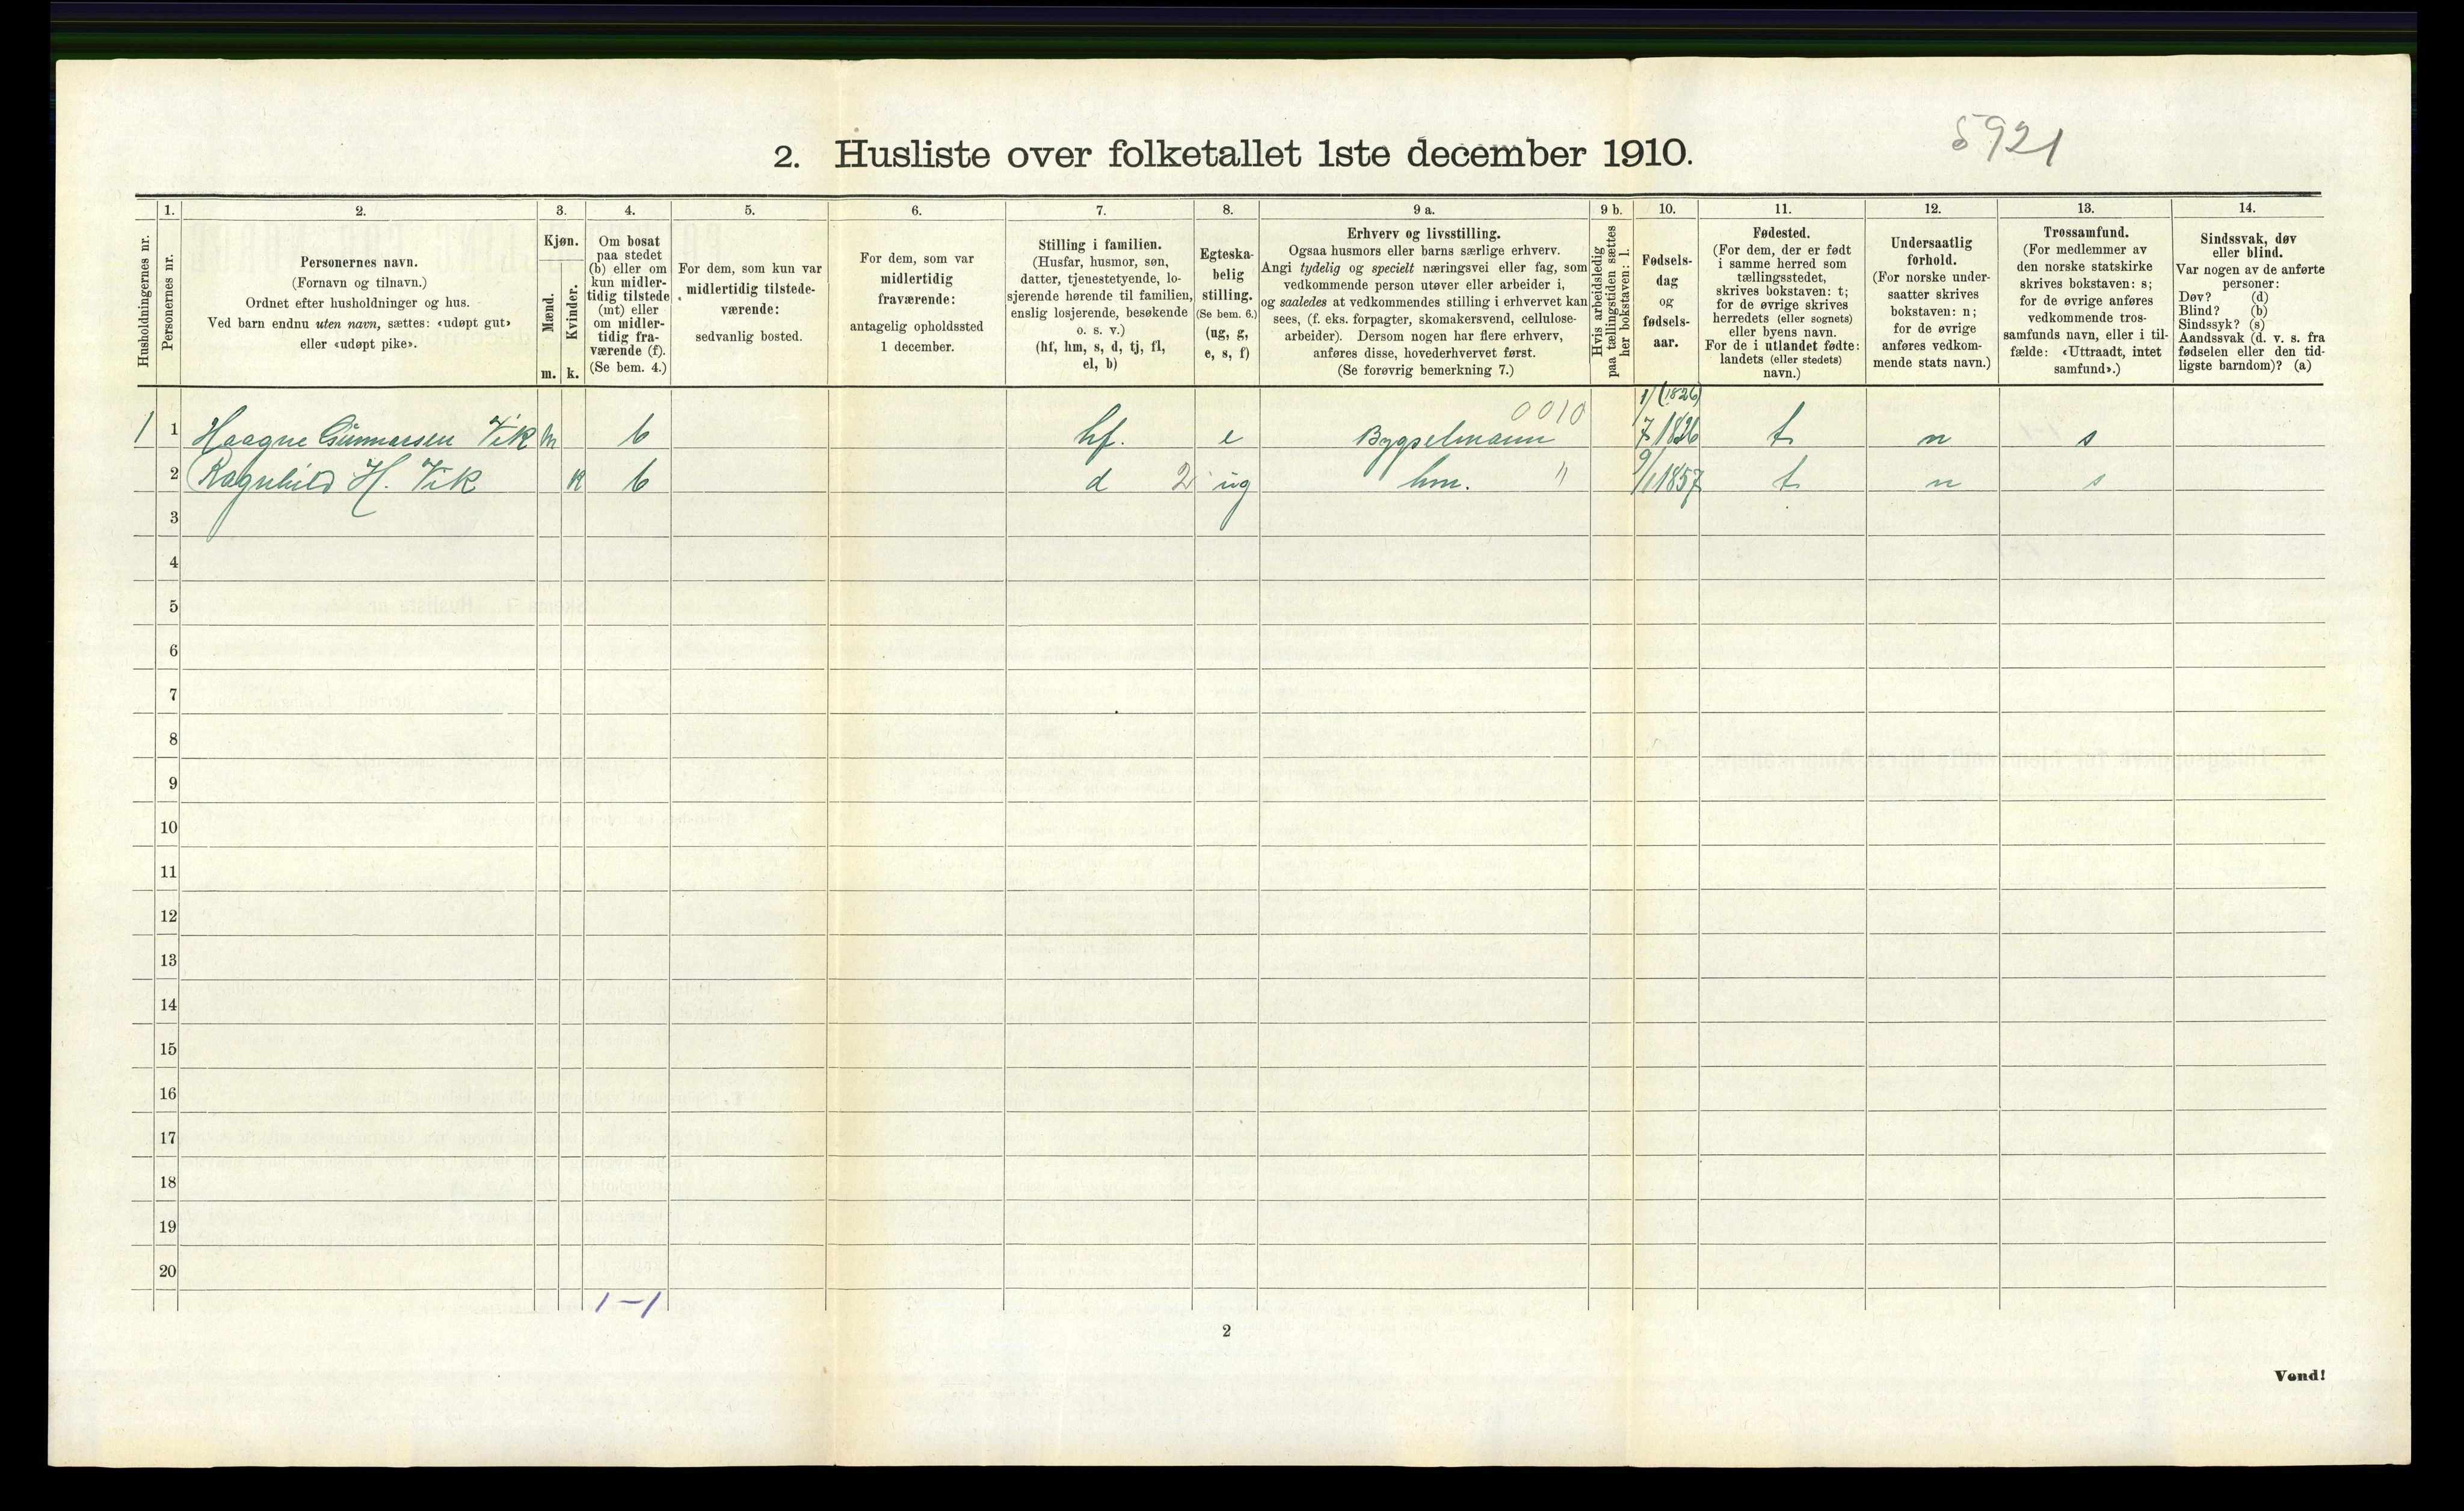 2. Husliste over folketallet 1ste december 1910.
5921
Husholdningernes nr.
1.
Personernes nr.
2.
Personernes navn.
(Fornavn og tilnavn.)
Ordnet efter husholdninger og hus.
Ved barn endnu uten navn, sættes: «udøpt gut»
eller «udøpt pike».
3.
Kjøn.
Mænd.
m.
Kvinder.
k.
4.
Om bosat
paa stedet
(b) eller om
kun midler-
tidig tilstede
(mt) eller
om midler-
tidig fra-
værende (f).
(Se bem. 4.)
5.
For dem, som kun var
midlertidig tilstede-
værende:
sedvanlig bosted.
6.
For dem, som var
midlertidig
fraværende:
antagelig opholdssted
1 december.
7.
Stilling i familien.
(Husfar, husmor, søn,
datter, tjenestetyende, lo-
sjerende hørende til familien,
enslig losjerende, besøkende
o. s. v.)
(hf, hm, s, d, tj, fl,
el, b)
8.
Egteska-
belig
stilling.
(Se bem. 6.)
(ug, g,
e, s, f)
9 a.
Erhverv og livsstilling.
Ogsaa husmors eller barns særlige erhverv.
Angi tydelig og specielt næringsvei eller fag, som
vedkommende person utøver eller arbeider i,
og saaledes at vedkommendes stilling i erhvervet kan
sees, (f. eks. forpagter, skomakersvend, cellulose-
arbeider). Dersom nogen har flere erhverv,
anføres disse, hovederhvervet først.
(Se forøvrig bemerkning 7.)
9 b.
Hvis arbeidsledig
paa tællingstiden sættes
her bokstaven: l.
10.
Fødsels-
dag
og
fødsels-
aar.
11.
Fødested.
(For dem, der er født
i samme herred som
tællingsstedet,
skrives bokstaven: t;
for de øvrige skrives
herredets (eller sognets)
eller byens navn.
For de i utlandet fødte:
landets (eller stedets)
navn.)
12.
Undersaatlig
forhold.
(For norske under-
saatter skrives
bokstaven: n;
for de øvrige
anføres vedkom-
mende stats navn.)
13.
Trossamfund.
(For medlemmer av
den norske statskirke
skrives bokstaven: s;
for de øvrige anføres
vedkommende tros-
samfunds navn, eller i til-
fælde: «Uttraadt, intet
samfund».)
14.
Sindssvak, døv
eller blind.
Var nogen av de anførte
personer:
Døv? (d)
Blind? (b)
Sindssyk? (s)
Aandssvak (d. v. s. fra
fødselen eller den tid-
ligste barndom)? (a)
1 1 Haagne Gunnarsen Vik m b hf. e Bygselmann 0010 1/7 1826 (1826) t n s
2 Ragnhild H. Vik k b d 2 ug hm. " 9/1 1857 t n s
3
4
5
6
7
8
9
10
11
12
13
14
15
16
17
18
19
20
1 – 1
2
Vend!